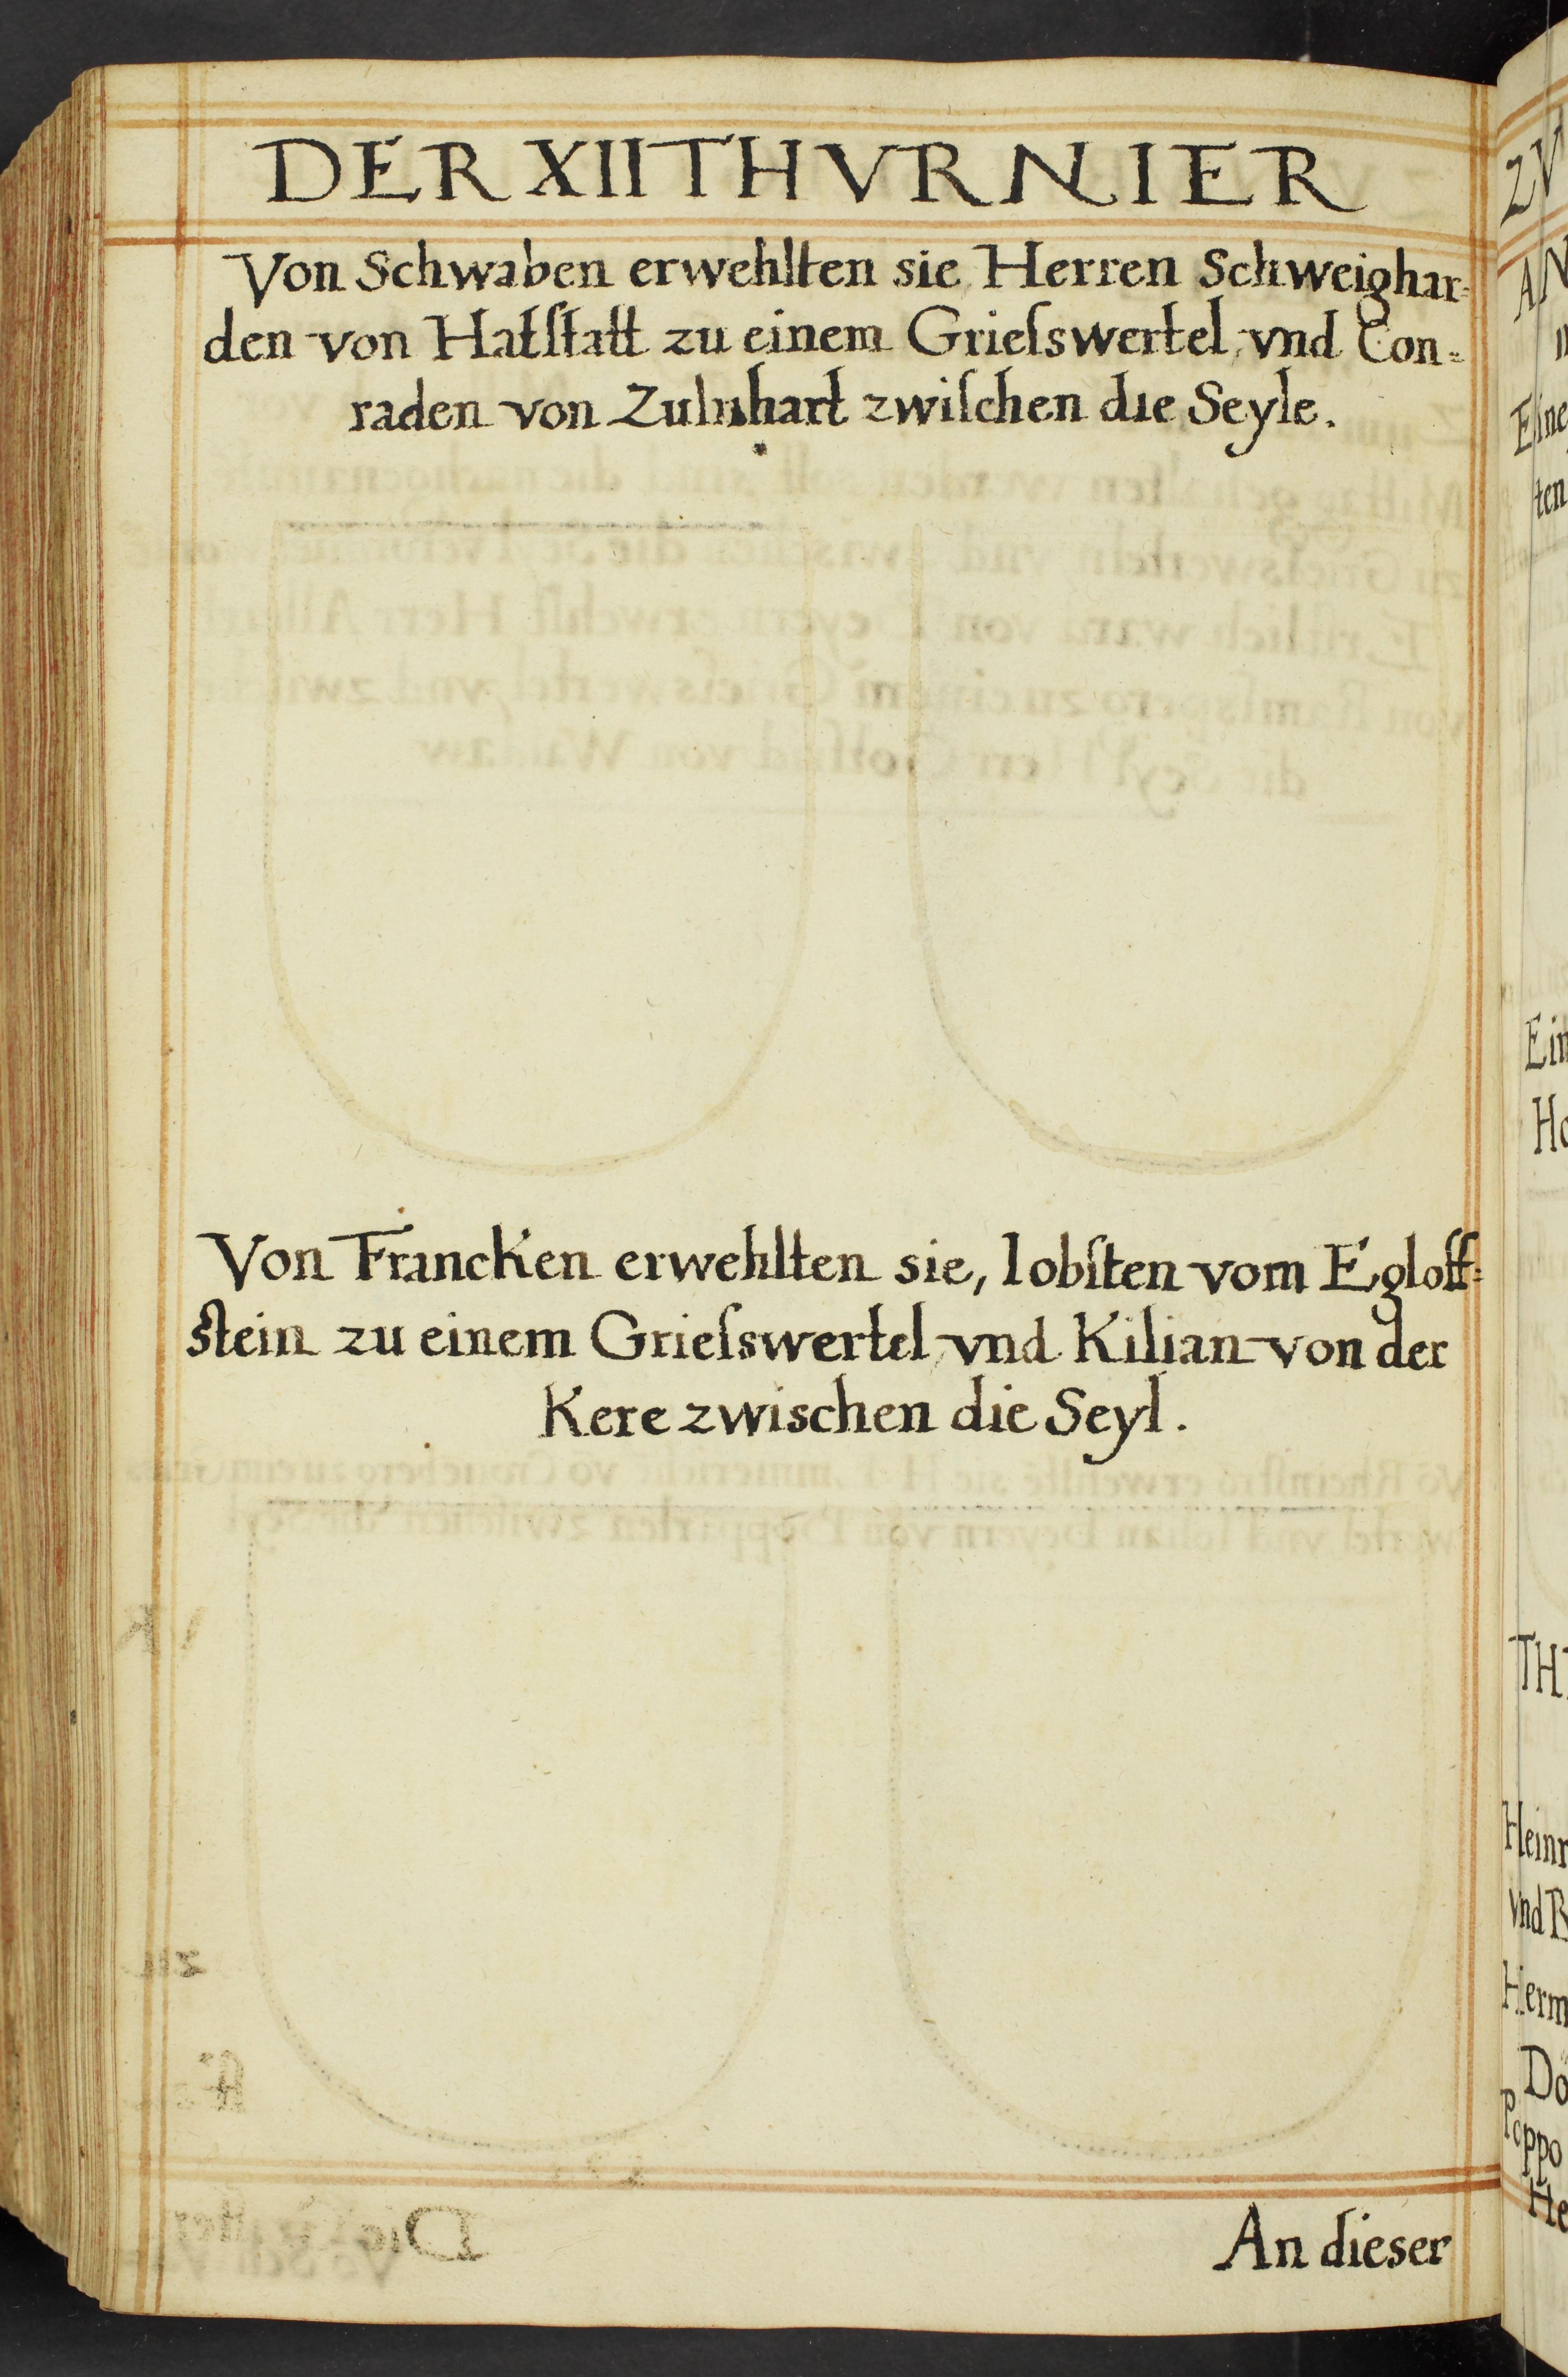 DER XII THVRNIER
Von Schwaben erwehlten sie Herren Schweighar=
den von Hatſtatt zu einem Grieſswertel, vnd Con=
raden von Zulnhart zwiſchen die Seyle.
Von Francken erwehlten sie, Iobſten vom Egloff=
stein zu einem Grieſswertel, vnd Kilian von der
Kere zwischen die Seyl.
An dieser